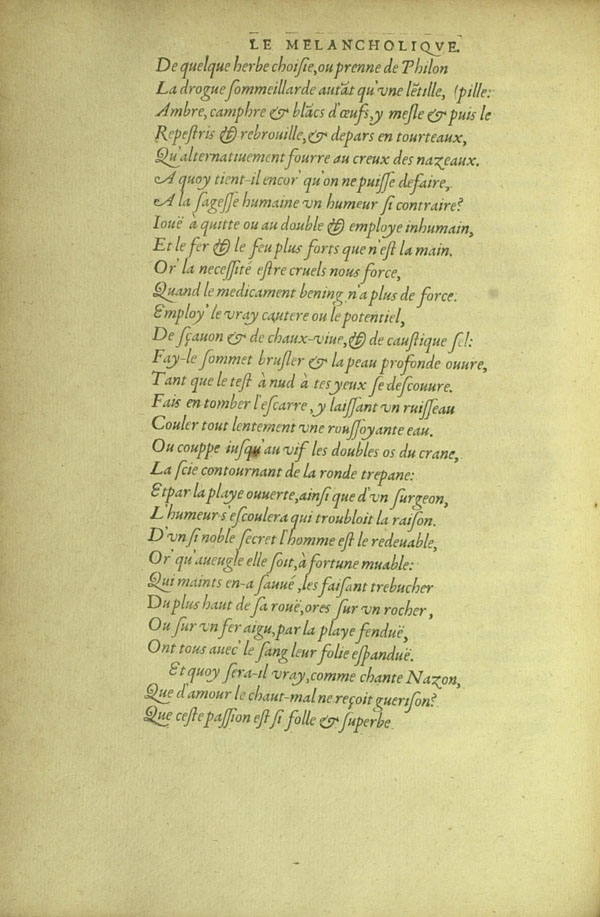 LE MELANCHOLIQVE.
De quelque herbe choiſie, ou prenne de Philon
La drogue ſommeillarde autãt qu'vne lẽtille, (pille:
Ambre, camphre & blãcs d'œufs, y meſle & puis le
Repeſtris & rebrouille, & depars en tourteaux,
Qu'alternatiuement fourre au creux des nazeaux.
A quoy tient-il encor' qu'on ne puiſſe defaire,
A la ſageſſe humaine vn humeur ſi contraire?
Iouë à quitte ou au double & employe inhumain,
Et le fer & le feu plus forts que n'eſt la main.
Or' la neceſſité eſtre cruels nous force,
Quand le medicament bening n'a plus de force:
Employ' le vray cautere ou le potentiel,
De ſçauon & de chaux-viue, & de cauſtique ſel:
Fay-le ſommet bruſler & la peau profonde ouure,
Tant que le teſt à nud à tes yeux ſe deſcouure.
Fais en tomber l'eſcarre, y laiſſant vn ruiſſeau
Couler tout lentement vne rouſſoyante eau.
Ou couppe iuſqu'au vif les doubles os du crane,
La ſcie contournant de la ronde trepane:
Et par la playe ouuerte, ainſi que d'vn ſurgeon,
L'humeur s'eſcoulera qui troubloit la raiſon.
D'vn ſi noble ſecret l'homme eſt le redeuable,
Or' qu'aueugle elle ſoit, à fortune muable:
Qui maints en-a ſauué, les faiſant trebucher
Du plus haut de ſa rouë, ores ſur vn rocher,
Ou ſur vn fer aigu, par la playe fenduë,
Ont tous auec' le ſang leur folie eſpanduë.
Et quoy ſera-il vray, comme chante Nazon,
Que d'amour le chaut-mal ne reçoit gueriſon?
Que ceſte paſſion eſt ſi folle & ſuperbe